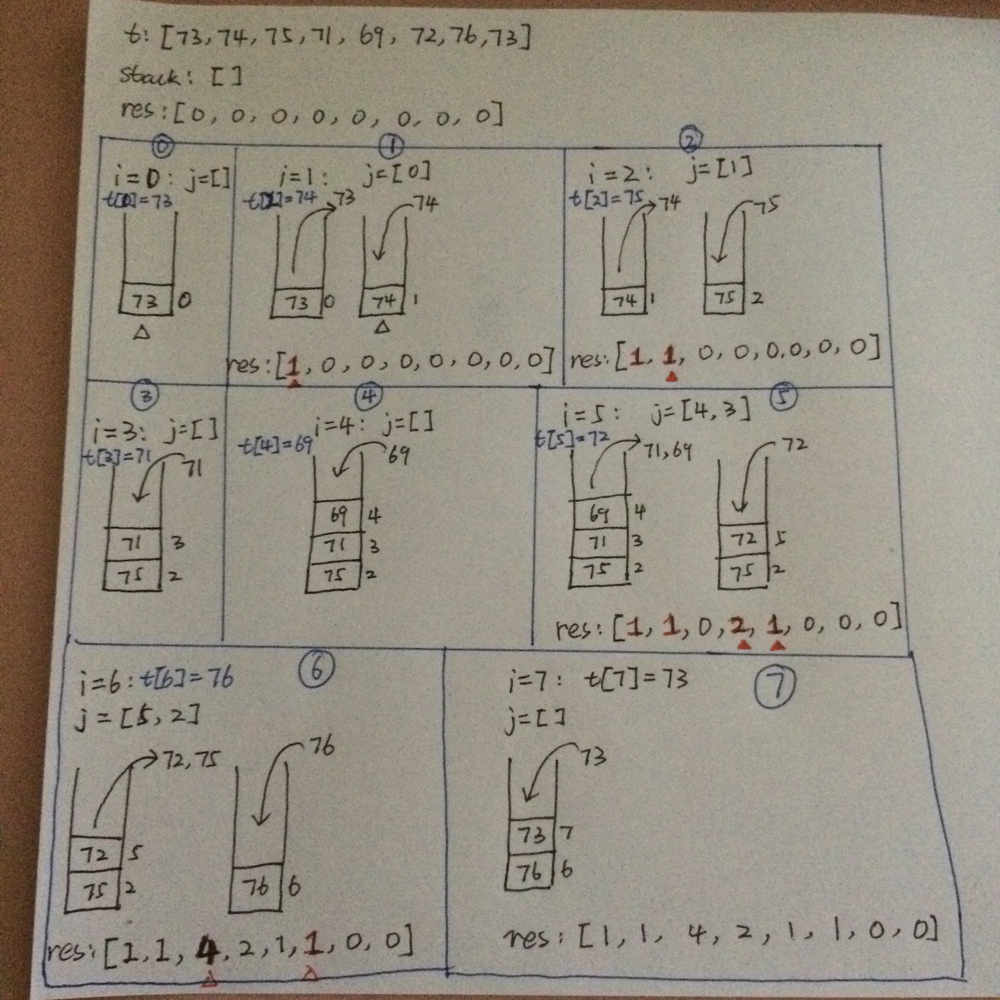 t: [73, 74, 75, 71, 69, 72, 76, 73]
stack: []
res: [0, 0, 0, 0, 0, 0, 0, 0]
0
i=0: j=[]
t[0]=73
73 0
1
i=1: j=[0]
t[1]=74
73
74
73 0
74 1
res: [1, 0, 0, 0, 0, 0, 0, 0]
2
i=2: j=[1]
t[2]=75
74
75
74 1
75 2
res: [1, 1, 0, 0, 0, 0, 0, 0]
3
i=3: j=[]
t[3]=71
71
71 3
75 2
4
i=4: j=[]
t[4]=69
69
69 4
71 3
75 2
5
i=5: j=[4,3]
t[5]=72
71, 69
72
69 4
71 3
75 2
72 5
75 2
res: [1, 1, 0, 2, 1, 0, 0, 0]
6
i=6: t[6]=76
j=[5,2]
72, 75
76
72 5
75 2
76 6
res: [1, 1, 4, 2, 1, 1, 0, 0]
7
i=7: t[7]=73
j=[]
73
73 7
76 6
res: [1, 1, 4, 2, 1, 1, 0, 0]